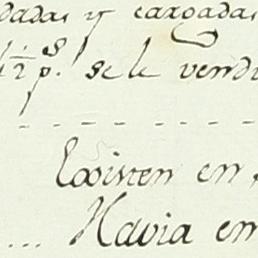 dadas y cargadas
1/2 ps. se le vend
Existen en
... Havia en